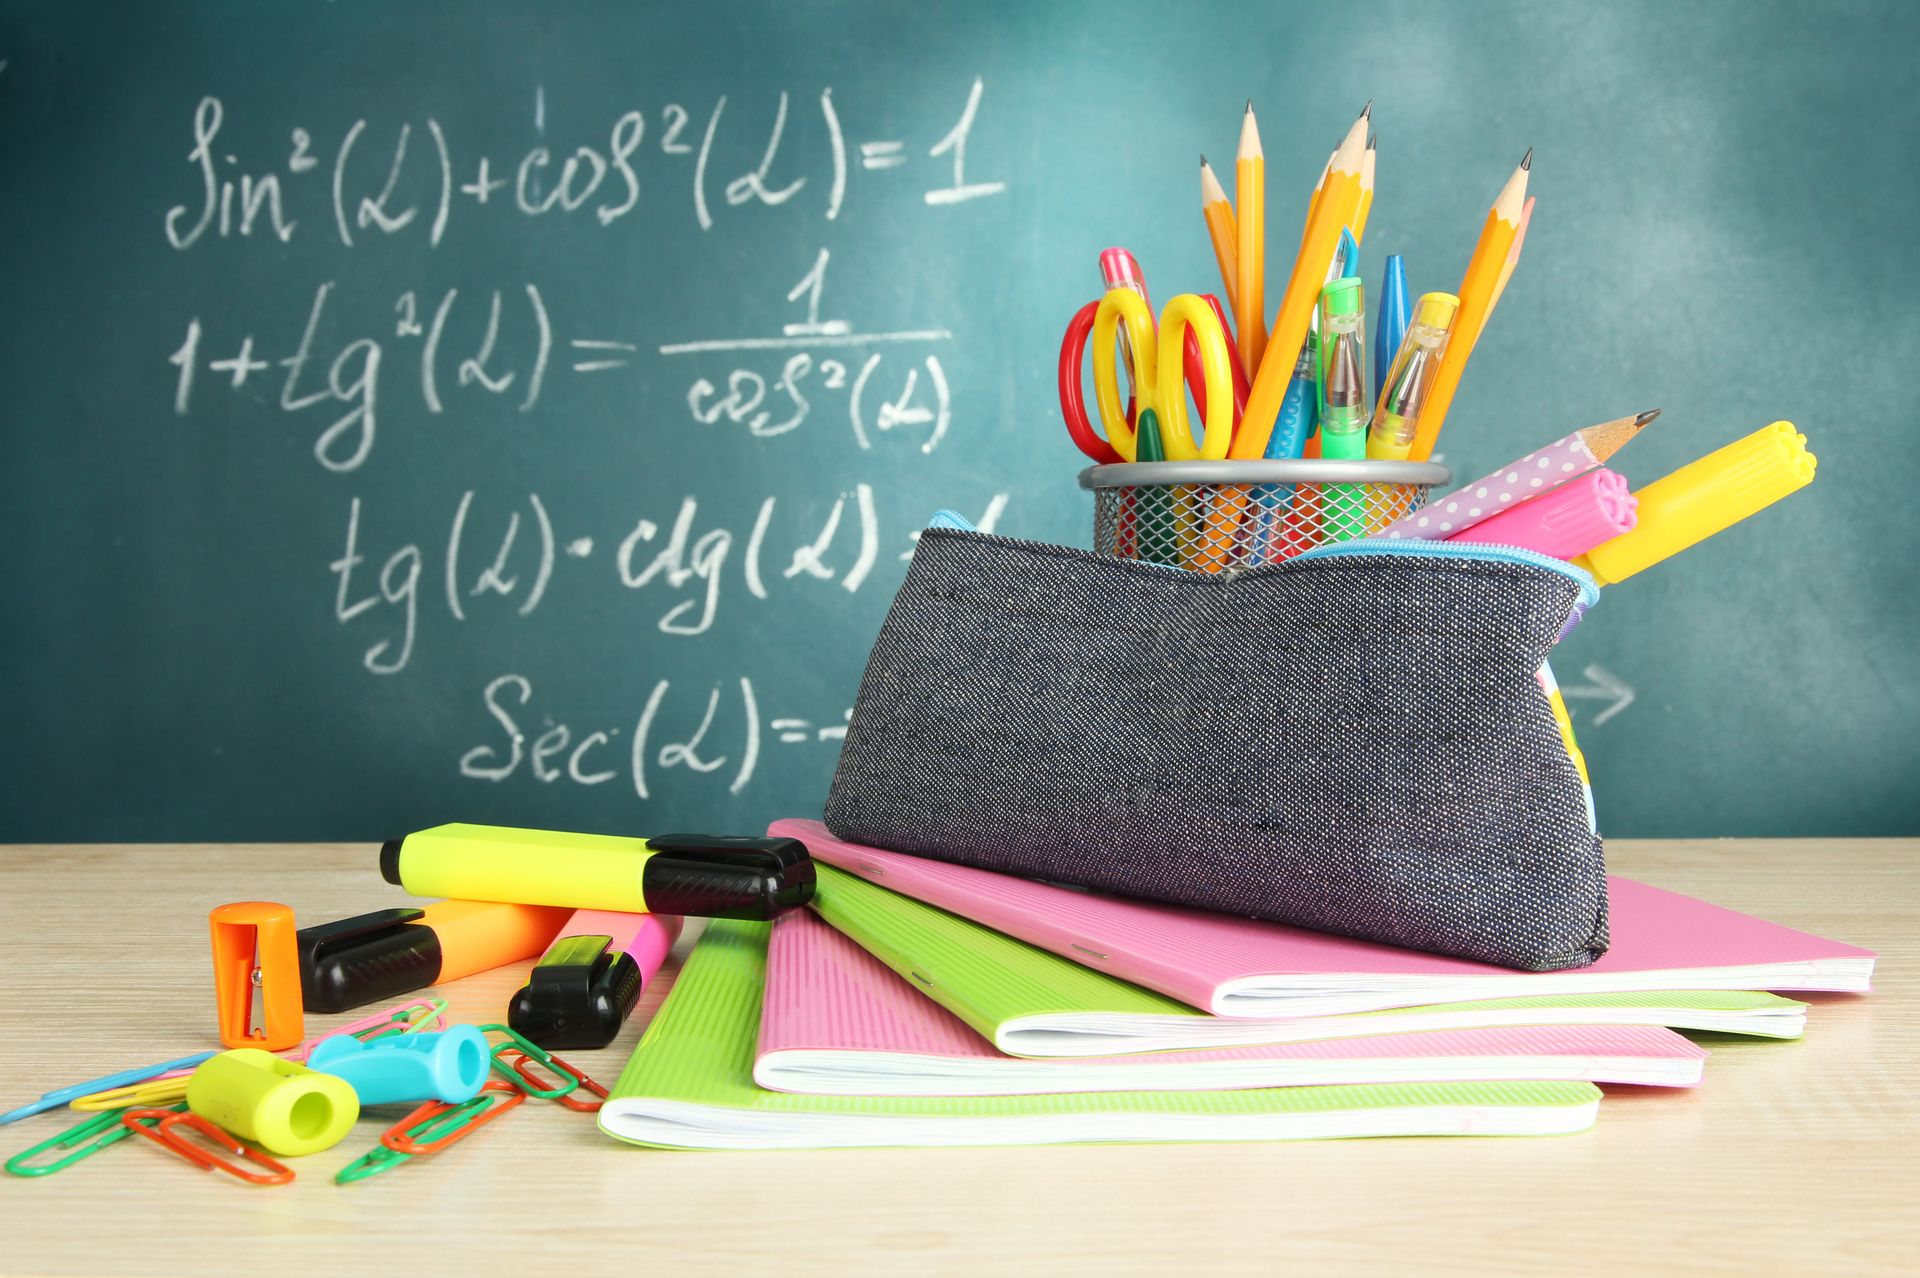 Sin²(α)+cos²(α)=1
1+tg²(α)=1/cos²(α)
tg(α)·ctg(α)
Sec(α)=